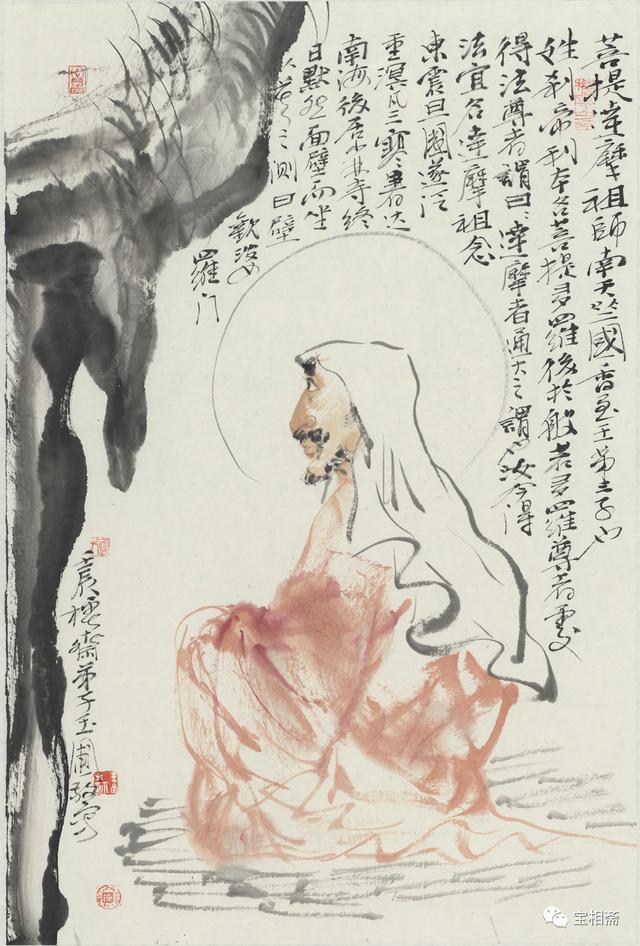 菩提達摩祖師南天竺國香至王第三子也
姓刹帝利本名菩提多羅後於般若多羅尊者處
得法尊者謂曰達摩者通大之謂也汝今得
法宜名達摩祖念
東震旦國遂泛
重溟凡三寒暑达
南海後居少林寺終
日默然面壁而坐
人莫之測曰壁
觀婆
羅门
壬辰齋弟子玉圃敬寫
宝相斋